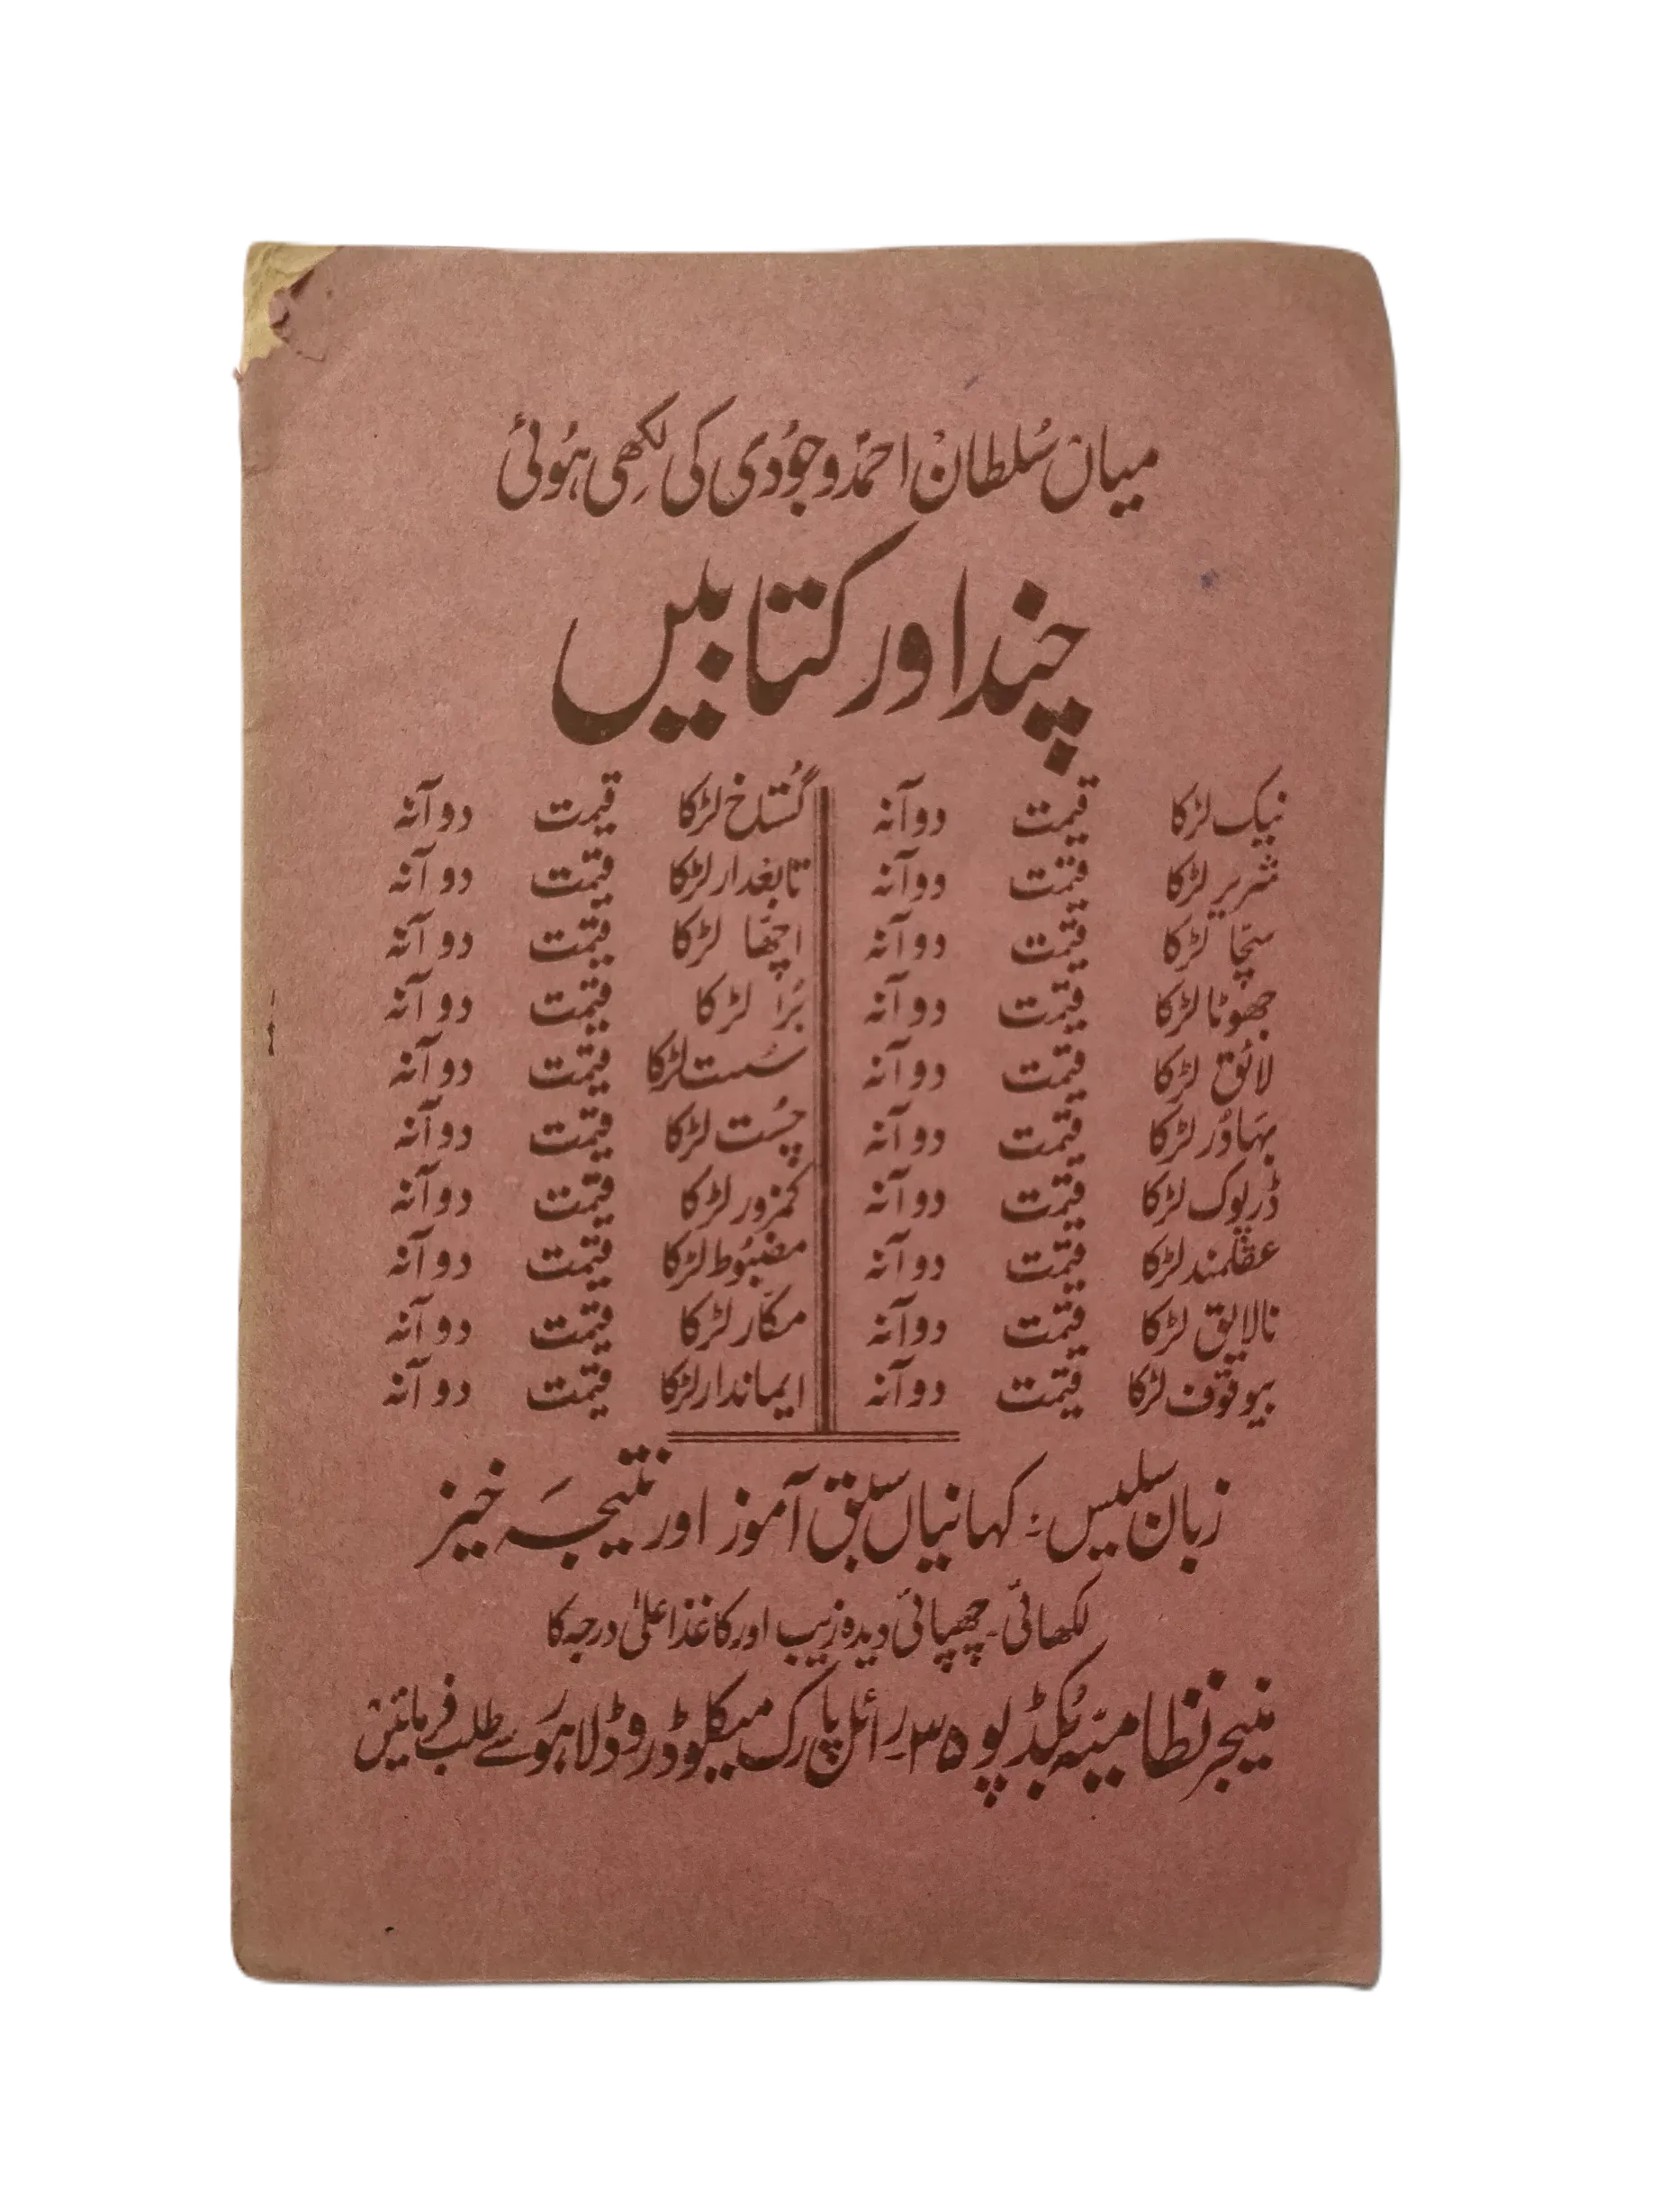 میاں سُلطان احمدؐ وجُودی کی لِکھی ہُوئی
چند اور کتابیں
نیک لڑکا قیمت دو آنہ گُستاخ لڑکا قیمت دو آنہ
شریر لڑکا قیمت دو آنہ تابعدار لڑکا قیمت دو آنہ
سچّا لڑکا قیمت دو آنہ اچھّا لڑکا قیمت دو آنہ
جھوٹا لڑکا قیمت دو آنہ بُرا لڑکا قیمت دو آنہ
لائق لڑکا قیمت دو آنہ سُست لڑکا قیمت دو آنہ
بہادُر لڑکا قیمت دو آنہ چُست لڑکا قیمت دو آنہ
ڈرپوک لڑکا قیمت دو آنہ کمزور لڑکا قیمت دو آنہ
عقلمند لڑکا قیمت دو آنہ مضبُوط لڑکا قیمت دو آنہ
نالایق لڑکا قیمت دو آنہ مکّار لڑکا قیمت دو آنہ
بیوقوف لڑکا قیمت دو آنہ ایماندار لڑکا قیمت دو آنہ
زبان سلیس؛ کہانیاں سبق آموز اور نتیجہ خیز
لکھائی۔ چھپائی دیدہ زیب اور کاغذ اعلیٰ درجہ کا
منیجر نظامیّہ بُکڈپو ۳۵ رائل پارک میکلوڈ روڈ لاہور سے طلب فرمائیں